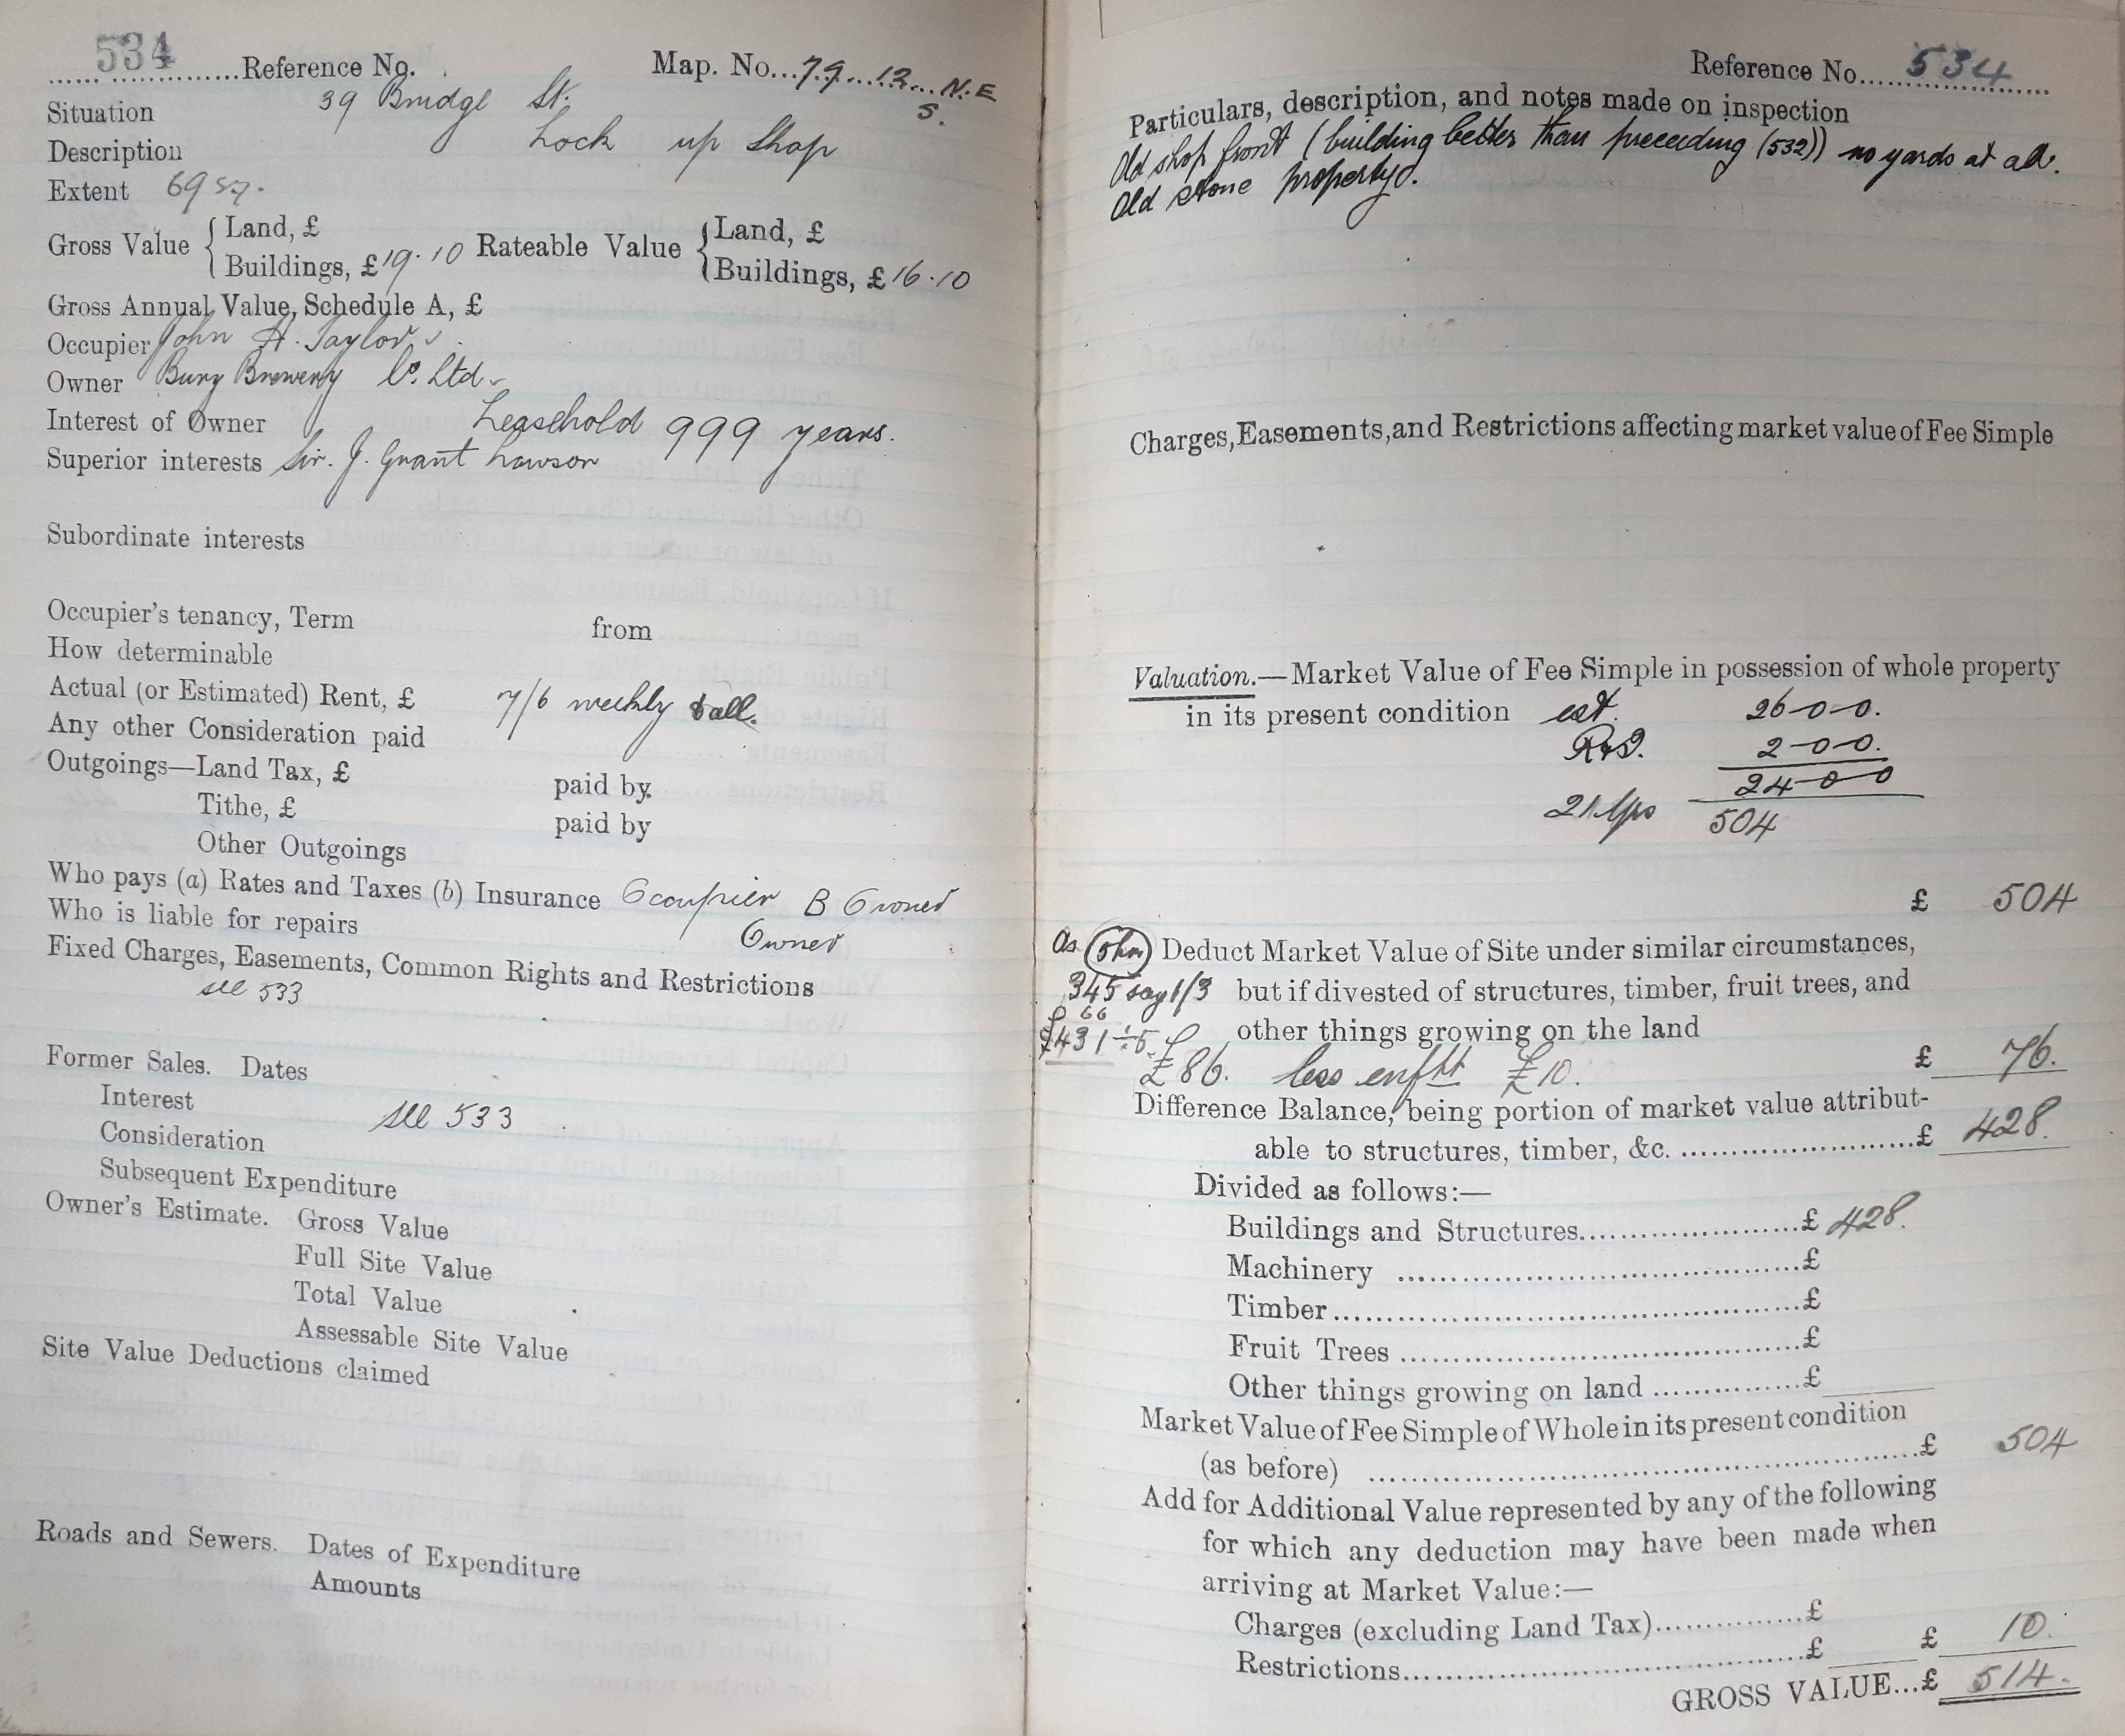 534
Reference No.
Map. No. 79 . 12 . N.E
S.
Situation 39 Bridge St.
Description Lock up Shop
Extent 69 sq.
Gross Value { Land, £
Buildings, £ 19.10 Rateable Value { Land, £
Buildings, £ 16.10
Gross Annual Value, Schedule A, £
Occupier John H. Taylor
Owner Bury Brewery Co. Ltd
Interest of Owner Leasehold 999 years.
Superior interests Sir. J. Grant Lawson
Subordinate interests
Occupier's tenancy, Term from
How determinable
Actual (or Estimated) Rent, £ 7/6 weekly & all.
Any other Consideration paid
Outgoings—Land Tax, £ paid by
Tithe, £ paid by
Other Outgoings
Who pays (a) Rates and Taxes (b) Insurance Occupier B Owner
Who is liable for repairs Owner
Fixed Charges, Easements, Common Rights and Restrictions
see 533
Former Sales. Dates
Interest
see 533
Consideration
Subsequent Expenditure
Owner's Estimate. Gross Value
Full Site Value
Total Value
Assessable Site Value
Site Value Deductions claimed
Roads and Sewers. Dates of Expenditure
Amounts
Reference No. 534
Particulars, description, and notes made on inspection
Old shop front (building better than preceding (532)) no yards at all.
Old stone property.
Charges, Easements, and Restrictions affecting market value of Fee Simple
Valuation.—Market Value of Fee Simple in possession of whole property
in its present condition est. 26-0-0.
R & I. 2-0-0.
24-0-0
21 yps 504
£ 504
As Deduct Market Value of Site under similar circumstances,
345 say 1/3 but if divested of structures, timber, fruit trees, and
66
£431÷5 other things growing on the land
£86. less enfht £10. £ 76.
Difference Balance, being portion of market value attribut-
able to structures, timber, &c. £ 428.
Divided as follows:—
Buildings and Structures £ 428.
Machinery £
Timber £
Fruit Trees £
Other things growing on land £
Market Value of Fee Simple of Whole in its present condition
(as before) £ 504
Add for Additional Value represented by any of the following
for which any deduction may have been made when
arriving at Market Value:—
Charges (excluding Land Tax) £
Restrictions £ £ 10.
GROSS VALUE...£ 514.